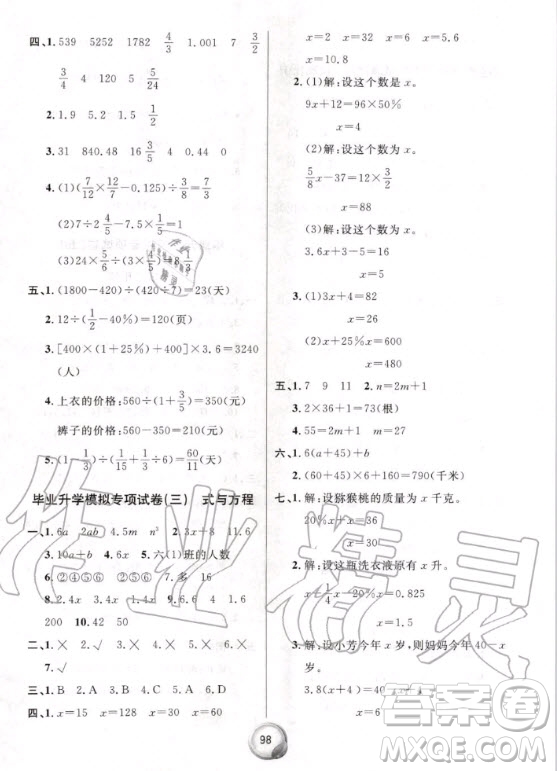 四、1. 539 5252 1782 4/3 1.001 7 3/2
3/4 4 120 5 5/24
2. 1.9 5.2 1.5
3. 31 840.48 16 3/5 4
4. (1)(7/12×12/7-0.125)÷3/8=7/3
(2)7÷2 4/5-7.5×1/5=1
(3)24×(3/4-
五、1. (1800-420)÷(420÷7)=23(天)
2. 12÷(1/2-40%)=120(页)
3. [400×(1+25%)+400]×3.6=3240
(人)
4. 上衣的价格:560÷(1+3/5)=350(元)
裤子的价格:560-350=210(元)
5. 1÷(1/15+
毕业升学模拟专项试卷(三) 式与方程
一、1. 6a 2ab 4. 5m n³ 2. 3x+8 11.6
3. 10a+b 4. 6x 5. 六(1)班的人数
6. ②④⑤⑥ ②⑤ 7. 多
8. 2.4x 3.4x 1.4x 9. 4 6 1.6
200 10. 42 50
二、1. × 2. √ 3. × 4. × 5. × 6. ×
7. √
三、1. B 2. A 3. B 4. A 5. D
四、1. x=15 x=128 x=30 x=60
x=2 x=32 x=5 x=36
x=10.8
2. (1)解:设这个数是 x。
9x+12=96×50%
x=4
(2)解:设这个数为 x。
5/8x-37=12×3/2
x=88
(3)解:设这个数为 x。
3.6x+3=7×3
x=5
3. (1)3x+4=82
x=26
(2)
x=480
五、1. 7 9 11 2. n=2m+1
3. 2×36+1=73(根)
4. 55=2m+1 m=27
六、1. 6(a+45)+b
2. (60+45)×6+160=790(千米)
七、1. 解:设猕猴桃的质量为 x 千克。
20%x+x=36
x=30
2. 解:设这瓶洗衣液原有 x 升。
x=1.375
3. 解:设小芳今年 x 岁,则妈妈今年 40-x
岁。
3.8(x+4)=
x=6
98
作业精灵
答案圈
MXQE.COM